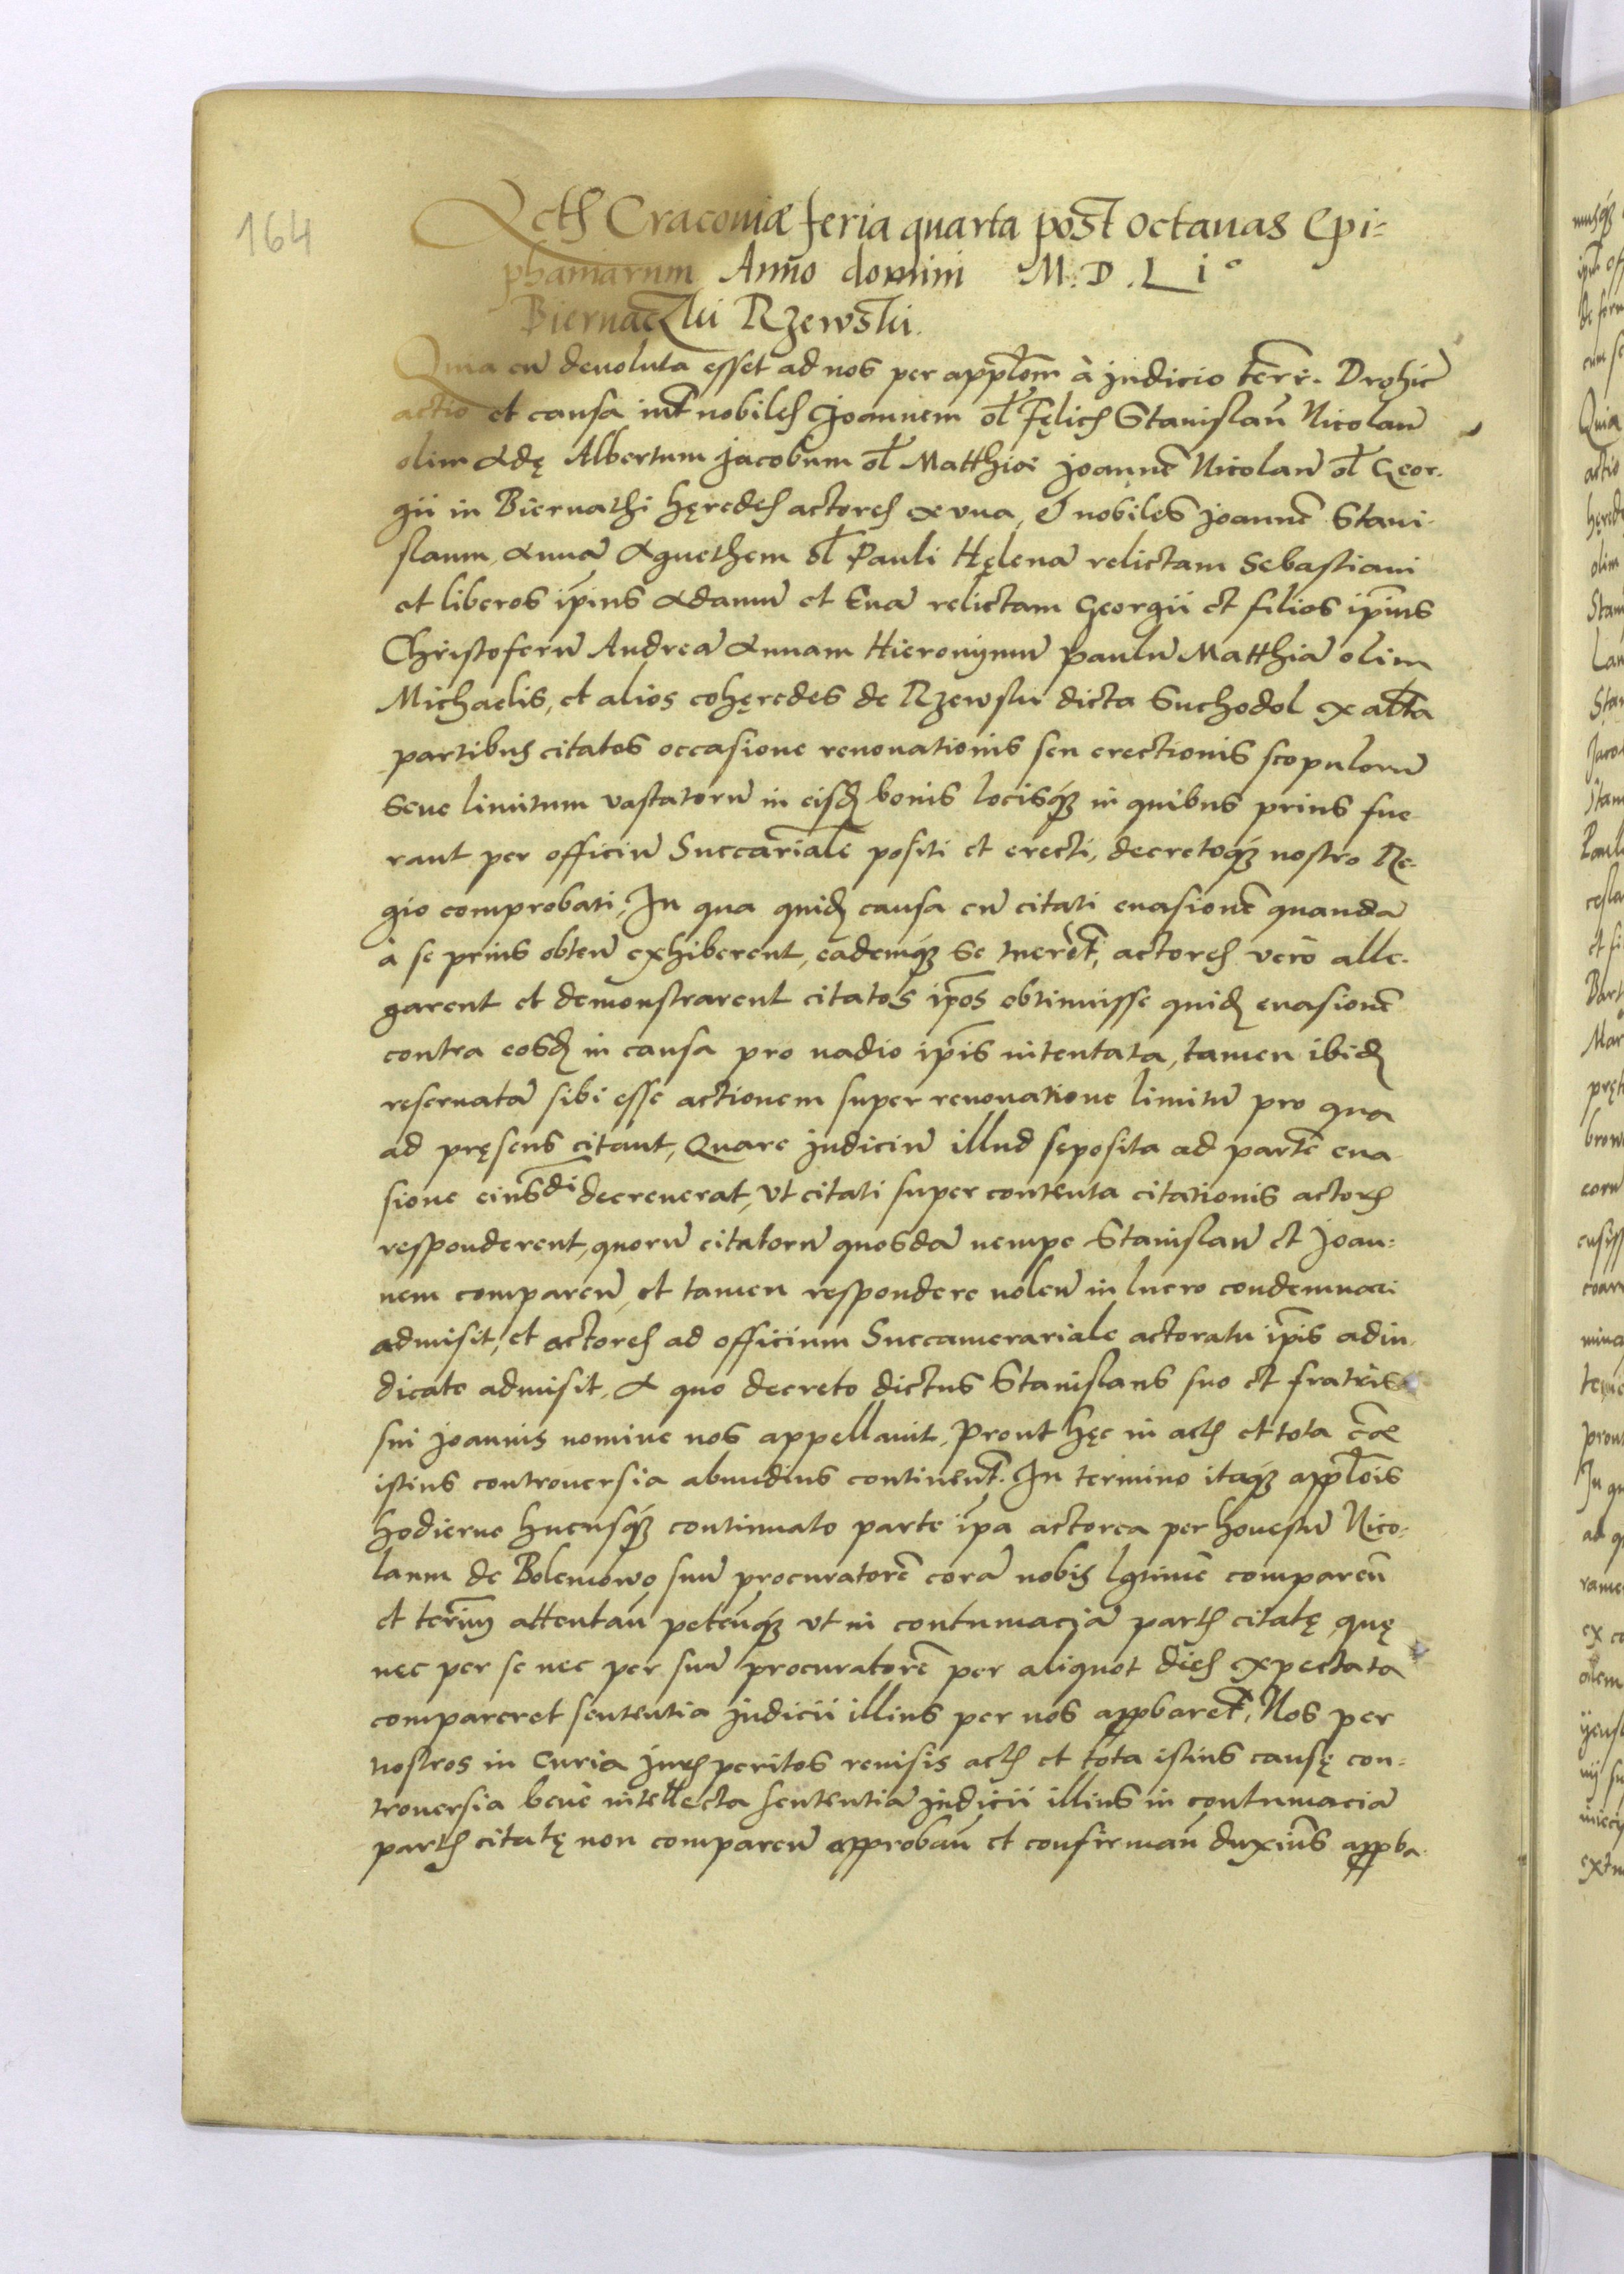 164
Acta Cracoviæ feria quarta post octavas Epi=
phaniarum Anno domini M.D.L i°
Biernaczki Rzewski.
Quia cū devoluta esset ad nos per appłom à judicio terr̃. Drohic̃
actio et causa int̃ nobiles Joannem oł Fęlicis Stanislaū Nicolaū
olim Adę Albertum Jacobum oł Matthiæ Joannē Nicolaū oł Geor-
gii in Biernathi hęredes actores ex una, & nobiles Joannē Stani-
slaum, Annā Agnethem oł Pauli Hęlenā relictam Sebastiani
et liberos ip̃ius Adamū et Evā relictam Georgii et filios ip̃ius
Christoferū Andreā Annam Hieronÿmū Paulū Matthiā olim
Michaelis, et alios cohęredes de Rzewski dicta Suchodol ex alt̃a
partibus citatos occasione renovationis seu erectionis scopulorū
seue limitum vastatorū in eisđ bonis locisque in quibus prius fue-
rant per officiū Succam̃rialē positi et erecti, decretoque nostro Re-
gio comprobati, In qua quiđ causa cū citati evasionē quandā
à se prius obteñ exhiberent, eademque se tuerent̃, actores verò alle-
garent et demonstrarent citatos ip̃os obtinuisse quiđ evasionē
contra eosđ in causa pro vadio ip̃is intentata, tamen ibiđ
reservatā sibi esse actionem super renovatione limitū pro qua
ad pręsens citant, Quare judiciū illud seposita ad partē eva
sione eiusdi decreverat, ut citati super contenta citationis actoris
responderent, quorū citatorū quosdā nempe Stanislaū et Joan=
nem compareñ et tamen respondere noleñ in lucro condemnari
admisit, et actores ad officium Succamerariale actoratu ip̃is adiu-
dicato admisit, A quo decreto dictus Stanislaus suo et fratris
sui Joannis nomine nos appellavit, Prout hęc in actis et tota cãæ
istius controversia abundius continent̃. In termino itaque appłois
hodierno hucusque continuato parte ip̃a actorea per honestū Nico=
laum de Bolemowo suū procuratorē corā nobis lgitimē compareñ
et terminū attentañ peteñque ut in contumaciā partis citatę quę
nec per se nec per suū procuratorē per aliquot dies expectata
compareret sententia judicii illius per nos approbaret̃, Nos per
nostros in Curia juris peritos revisis actis et tota istius causę con=
troversia benè intellecta sententiā judicii illius in contumaciā
partis citatę non compareñ approbañ et confirmañ duximus approba-